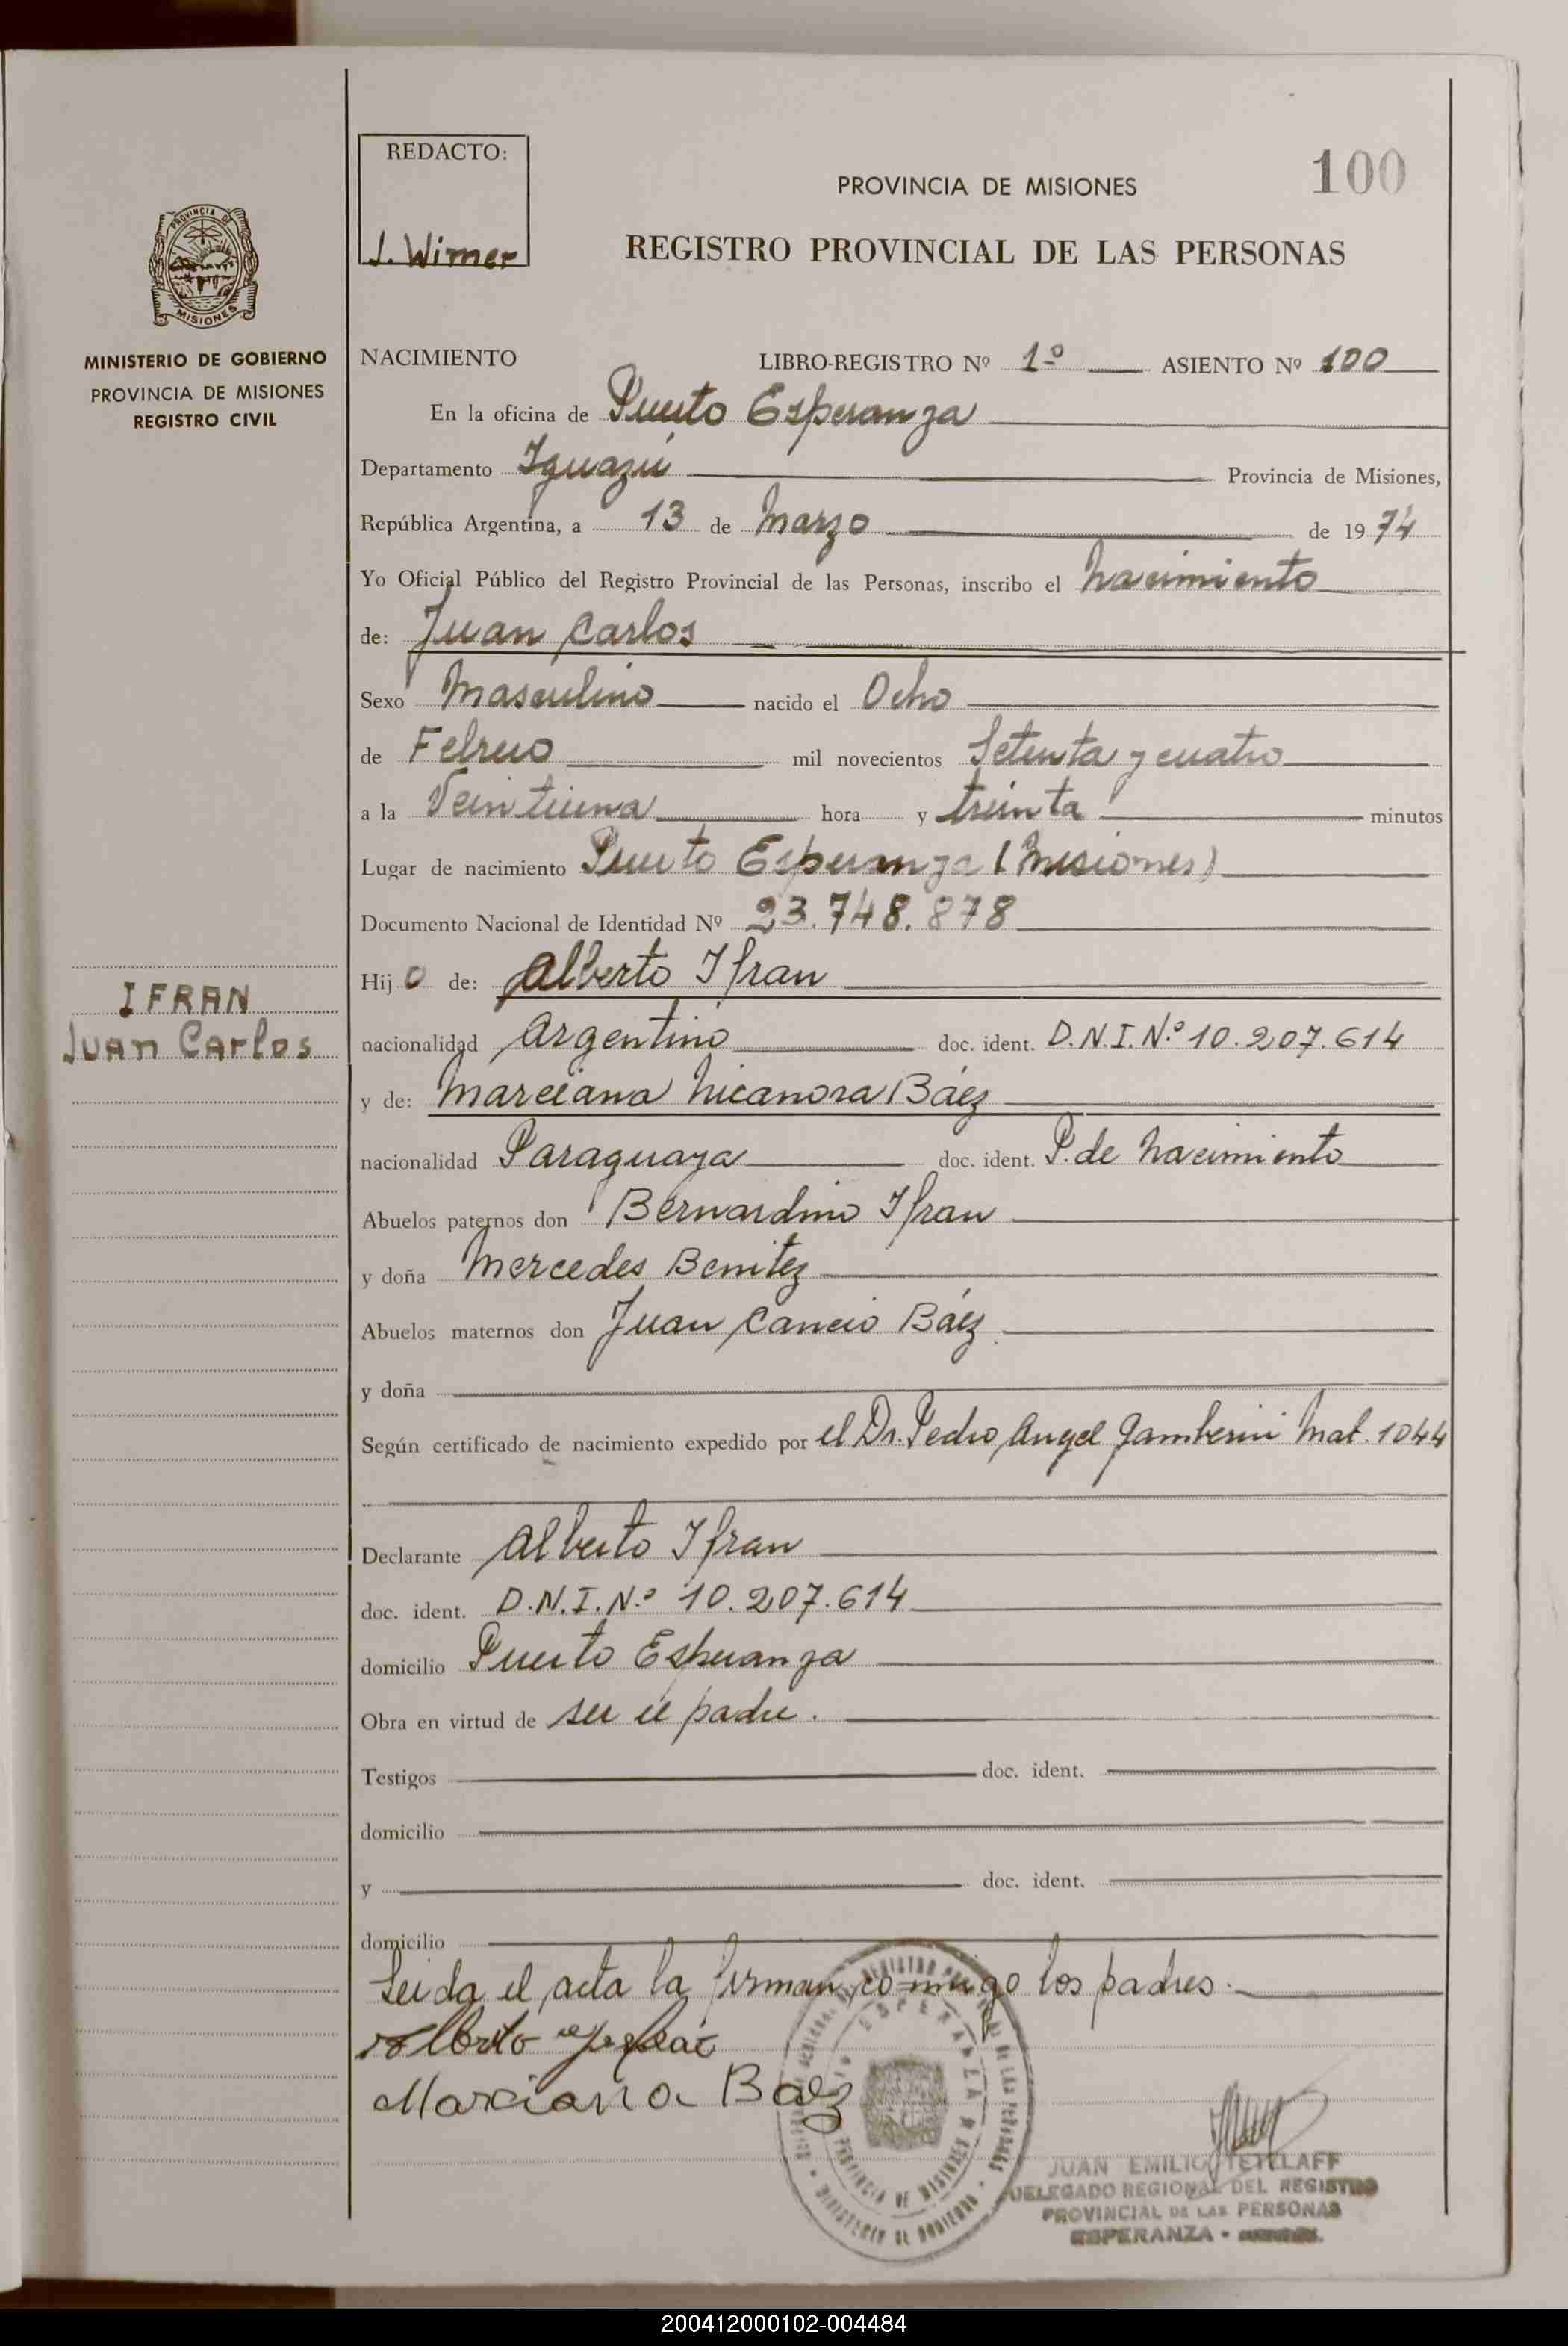 REDACTO:
J. Wimer
PROVINCIA DE MISIONES
100
REGISTRO PROVINCIAL DE LAS PERSONAS
PROVINCIA DE
MISIONES
MINISTERIO DE GOBIERNO
PROVINCIA DE MISIONES
REGISTRO CIVIL
NACIMIENTO LIBRO-REGISTRO Nº 1º ASIENTO Nº 100
En la oficina de Puerto Esperanza
Departamento Iguazú Provincia de Misiones,
República Argentina, a 13 de Marzo de 1974
Yo Oficial Público del Registro Provincial de las Personas, inscribo el Nacimiento
de: Juan Carlos
Sexo Masculino nacido el Ocho
de Febrero mil novecientos Setenta y cuatro
a la Veintiuna hora y treinta minutos
Lugar de nacimiento Puerto Esperanza (Misiones)
Documento Nacional de Identidad Nº 23.748.878
Hijo de: Alberto Ifran
IFRAN
Juan Carlos
nacionalidad Argentino doc. ident. D.N.I. Nº 10.207.614
y de: Marciana Nicanora Báez
nacionalidad Paraguaya doc. ident. P. de Nacimiento
Abuelos paternos don Bernardino Ifran
y doña Mercedes Benitez
Abuelos maternos don Juan Cancio Báez
y doña
Según certificado de nacimiento expedido por el Dr. Pedro Angel Gamberini Mat. 1044
Declarante Alberto Ifran
doc. ident. D.N.I. Nº 10.207.614
domicilio Puerto Esperanza
Obra en virtud de ser el padre.
Testigos doc. ident.
domicilio
y doc. ident.
domicilio
Leida el acta la firman conmigo los padres.
Alberto
Marciana Baez
ESPERANZA
PROVINCIA DE MISIONES
MINISTERIO DE GOBIERNO
JUAN EMILIO TETZLAFF
DELEGADO REGIONAL DEL REGISTRO
PROVINCIAL DE LAS PERSONAS
ESPERANZA -
200412000102-004484